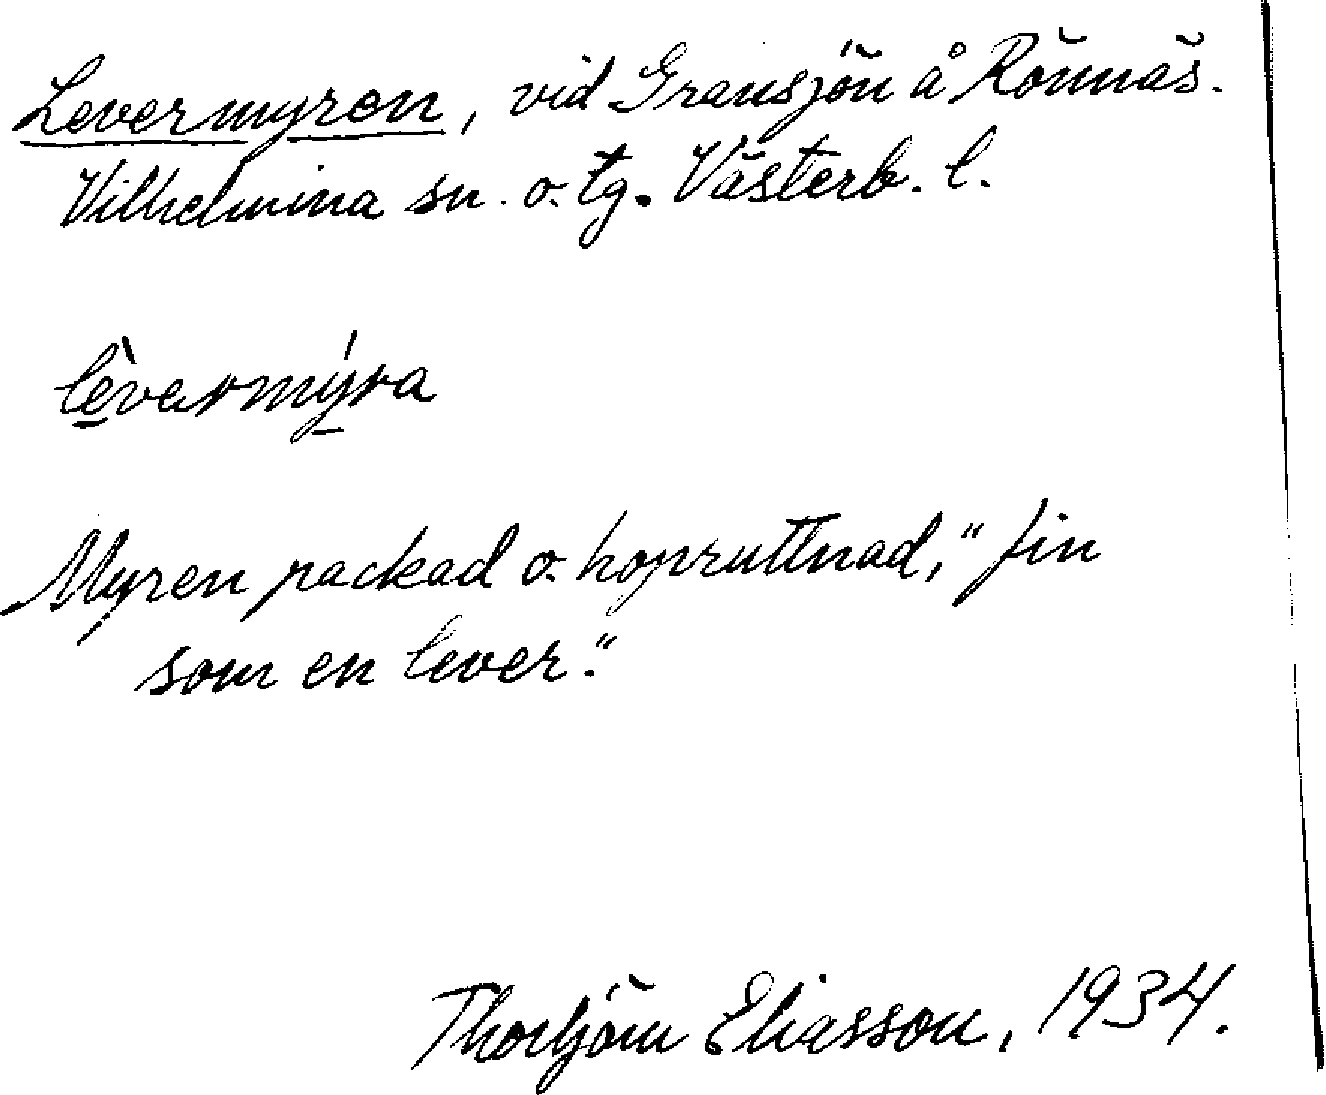 Levermyren, vid Gransjön å Rönnäs.
Vilhelmina sn. o. tg. Västerb. l.
lèvermýra
Myren packad o. hopruttnad, "fin
som en lever."
Thorbjörn Eliasson, 1934.